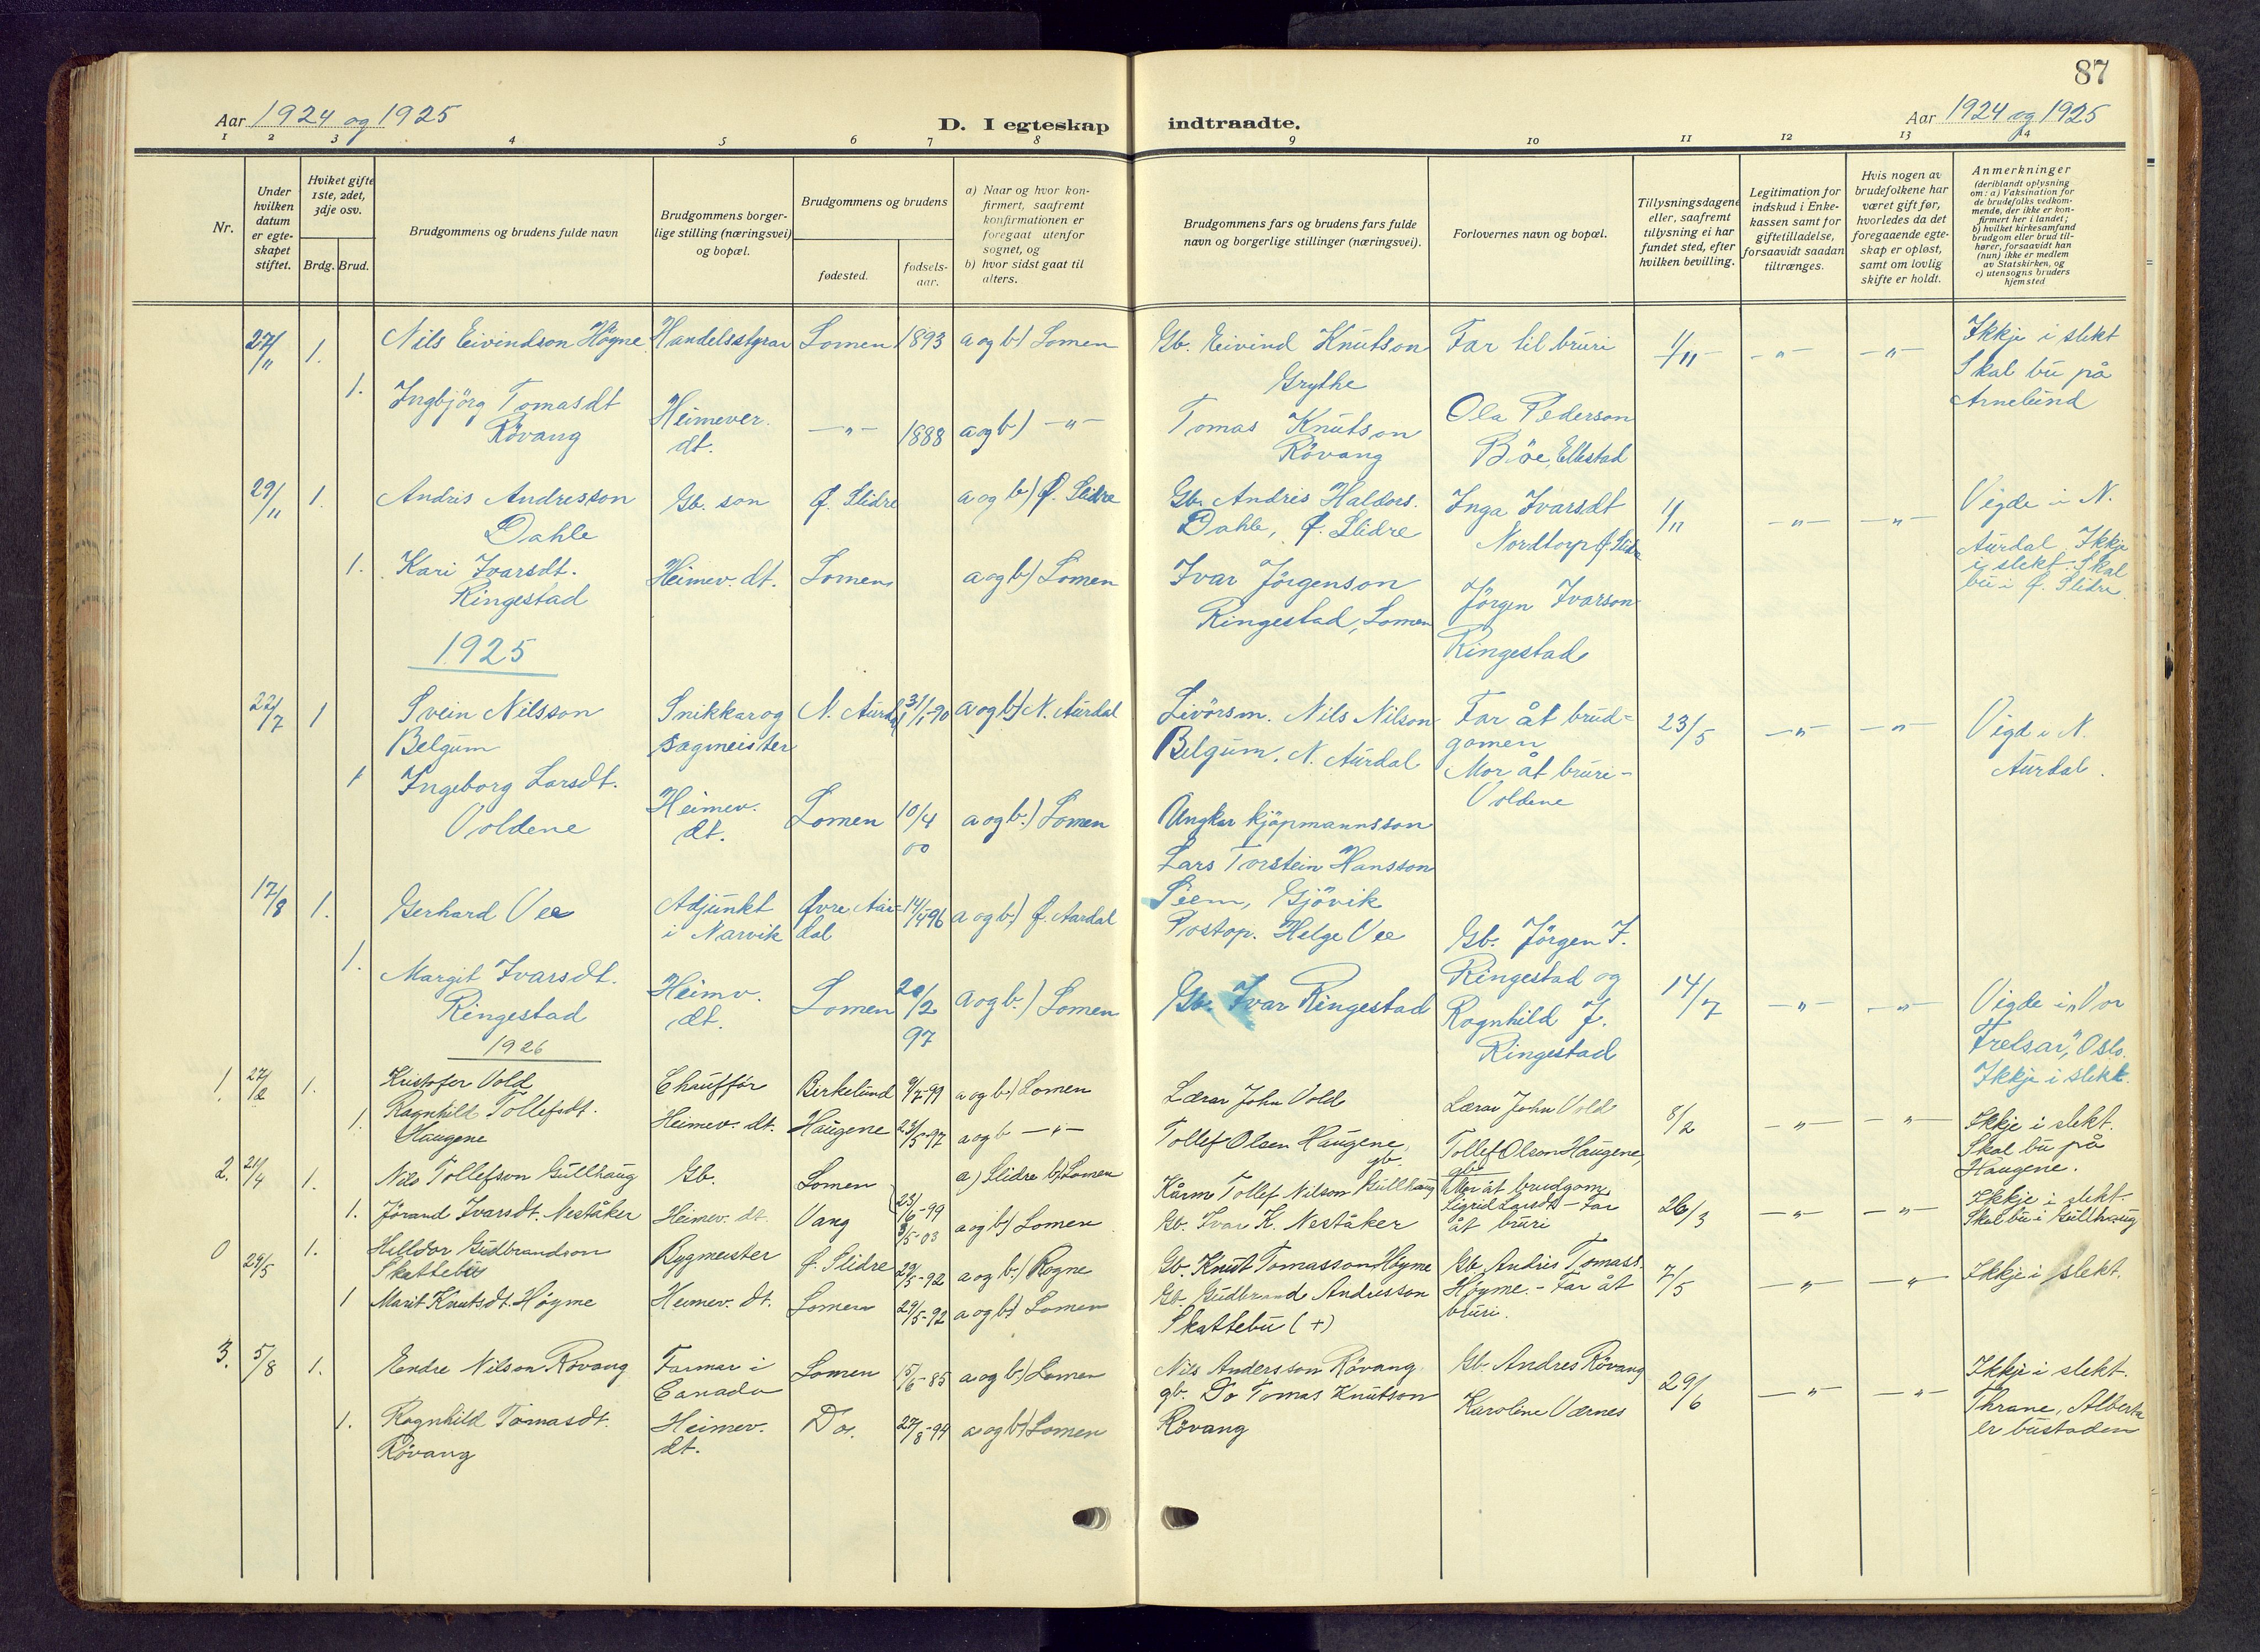 87
Aar 1924 og 1925
D. I egteskap indtraadte.
Aar 1924 og 1925
1 2 3 4 5 6 7 8 9 10 11 12 13 14
Nr.
Under hvilken datum er egte-skapet stiftet.
Hviket gifte 1ste, 2det, 3dje osv.
Brdg. Brud.
Brudgommens og brudens fulde navn
Brudgommens borger-
lige stilling (næringsvei)
og bopæl.
Brudgommens og brudens
fødested.
fødsels-
aar.
a) Naar og hvor kon-
firmert, saafremt
konfirmationen er
foregaat utenfor
sognet, og
b) hvor sidst gaat til
alters.
Brudgommens fars og brudens fars fulde
navn og borgerlige stillinger (næringsvei).
Forlovernes navn og bopæl.
Tillysningsdagene
eller, saafremt
tillysning ei har
fundet sted, efter
hvilken bevilling.
Legitimation for
indskud i Enke-
kassen samt for
giftetilladelse,
forsaavidt saadan
tiltrænges.
Hvis nogen av
brudefolkene har
været gift før,
hvorledes da det
foregaaende egte-
skap er opløst,
samt om lovlig
skifte er holdt.
Anmerkninger
(deriblandt oplysning
om: a) Vaksination for
de brudefolks vedkom-
mende, der ikke er kon-
firmert her i landet;
b) hvilket kirkesamfund
brudgom eller brud til-
hører, forsaavidt han
(hun) ikke er medlem
av Statskirken, og
c) utensogns bruders
hjemsted
27/11 1. Nils Eivindson Høgne Handelsstyrar Lomen 1893 a og b) Lomen Gb. Eivind Knutson Grythe Far til bruri 1/11 -"- -"- Ikkje i slekt
Skal bu på
Arnelund
1. Ingbjörg Tomasdt Rövang Heimever. dt. -"- 1888 a og b) -"- Tomas Knutson Rövang Ola Pederson Böe, Ellestad
29/11 1. Andris Andresson Dahle Gb. son Ø. Slidre a og b) Ø. Slidre Gb. Andris Haldors. Dahle, Ø. Slidre Inga Ivarsdt Nordtorp Ø. Slidre 1/11 -"- -"- Vigde i N.
Aurdal. Ikkje
i slekt. Skal
bu i Ø. Slidre.
1. Kari Ivarsdt. Ringestad Heimev. dt. Lomen a og b) Lomen Ivar Jörgenson Ringestad, Lomen Jörgen Ivarson Ringestad
1925
22/7 1 Svein Nilsson Belgum Snikkar og sagmeister N. Aurdal 31/1-90 a og b) N. Aurdal Livörsm. Nils Nilson Belgum, N. Aurdal Far åt brud-
gomen
Mor åt bruri -
Voldene 23/5 -"- -"- Vigd i N.
Aurdal.
1 Ingeborg Larsdt. Voldene Heimev. dt. Lomen 10/4 00 a og b.) Lomen Ungkar kjöpmannsson
Lars Torstein Hansson
Siem, Gjövik
17/8 1. Gerhard Vee Adjunkt i Narvik Øvre Aardal 14/4-96 a og b) Ø. Aardal Postop. Helge Vee Gb. Jörgen I.
Ringestad og
Ragnhild J.
Ringestad 14/7 -"- -"- Vigde i "Vor
Frelsar", Oslo.
Ikkje i slekt.
1. Margit Ivarsdt. Ringestad Heimv. dt. Lomen 20/2 97 a og b.) Lomen Gb. Ivar Ringestad
1926
1. 27/2 1. Kristofer Vold Chauffør Berkelund 9/7-99 a og b) Lomen Lærar John Vold Lærar John Vold 8/2 -"- -"- Ikkje i slekt.
Skal bu på
Haugene.
1. Ragnhild Tollefsdt. Haugene Heimev. dt. Haugene 23/5-97 a og b -"- Tollef Olsen Haugene, gb. Tollef Olson Haugene, gb
2. 21/4 1. Nils Tollefson Gullhaug Gb. Lomen 23/6-99 a) Slidre b) Lomen Kårm. Tollef Nilson Gullhaug Mor åt brudgom
Sigrid Larsdt - Far
åt bruri 26/3 -"- -"- Ikkje i slekt.
Skal bu i Gullhaug
1. Jörand Ivarsdt. Neståker Heimev. dt. Vang 3/5-03 a og b) Lomen Gb. Ivar K. Neståker
0 29/5 1. Helldor Gudbrandson Skattebu Bygmeister Ø. Slidre 29/5-92 a og b.) Rogne Gb. Knut Tomasson Høyme Gb. Andris Tomass.
Høyme. - Far åt
bruri. 7/5 -"- -"- Ikkje i slekt.
1 Marit Knutsdt. Høyme Heimev. dt. Lomen 29/5-92 a og b) Lomen Gb. Gudbrand Andresson
Skattebu (+)
3. 5/8 1. Endre Nilson Rövang Farmar i Canada Lomen 15/6-85 a og b) Lomen Nils Andersson Rövang
gb. Gb. Andres Rövang 29/6 -"- -"- Ikkje i slekt.
Thrane, Alberta
er bustaden
1. Ragnhild Tomasdt. Rövang Heimev. dt. Do. 27/8-94 a og b) Lomen Do Tomas Knutson
Rövang Karoline Værnes